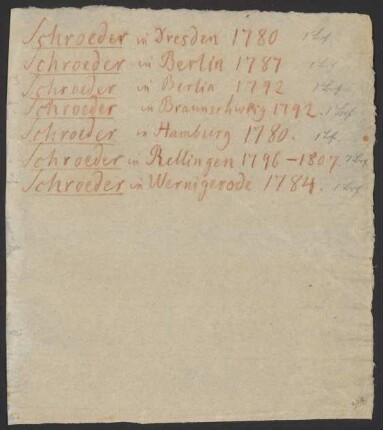 Schroeder in Dresden 1780
Schroeder in Berlin 1787
Schroeder in Berlin 1792
Schroeder in Braunschweig 1792.
Schroeder in Hamburg 1780.
Schroeder in Rellingen 1796-1807.
Schroeder in Wernigerode 1784.